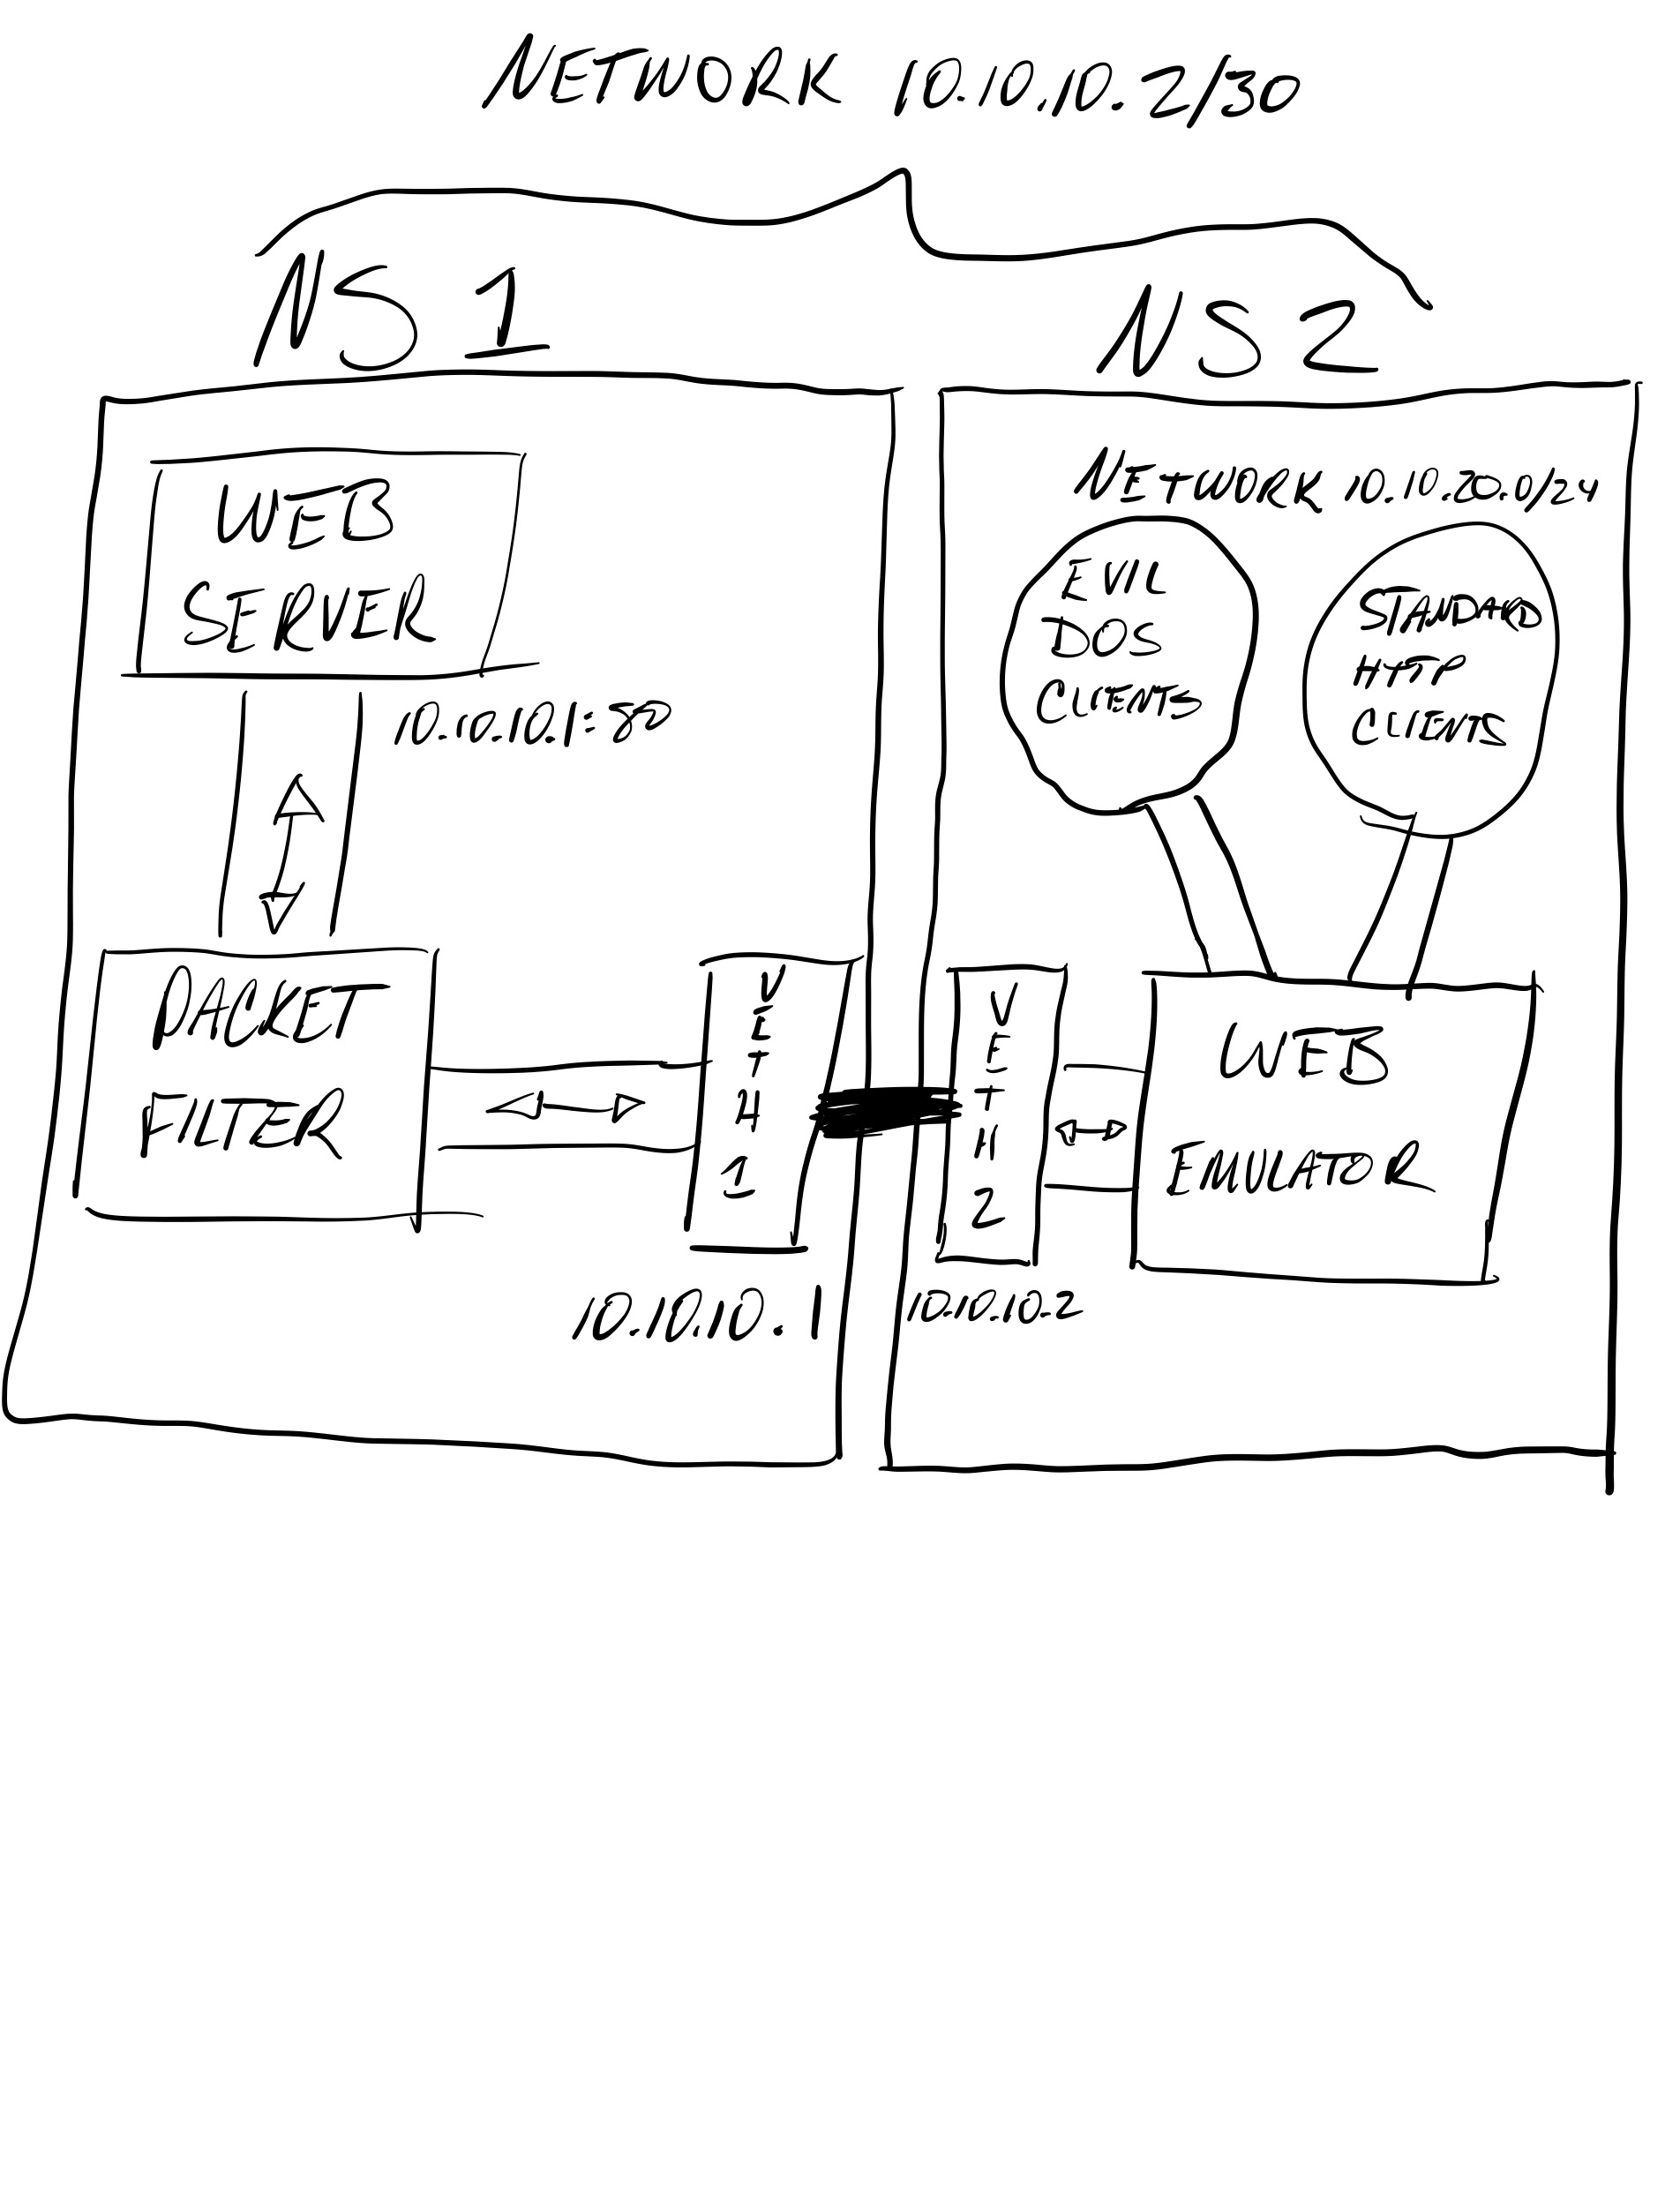 NETWORK 10.10.10.2/30
NS 1
NS 2
WEB
SERVER
10.10.10.1:80
PACKET
FILTER
VETH1
10.10.10.1
NETWORK 10.10.20.0/24
EVIL
DOS
CLIENTS
STANDARD
HTTP
CLIENTS
VETH2
10.10.10.2
WEB
EMULATOR